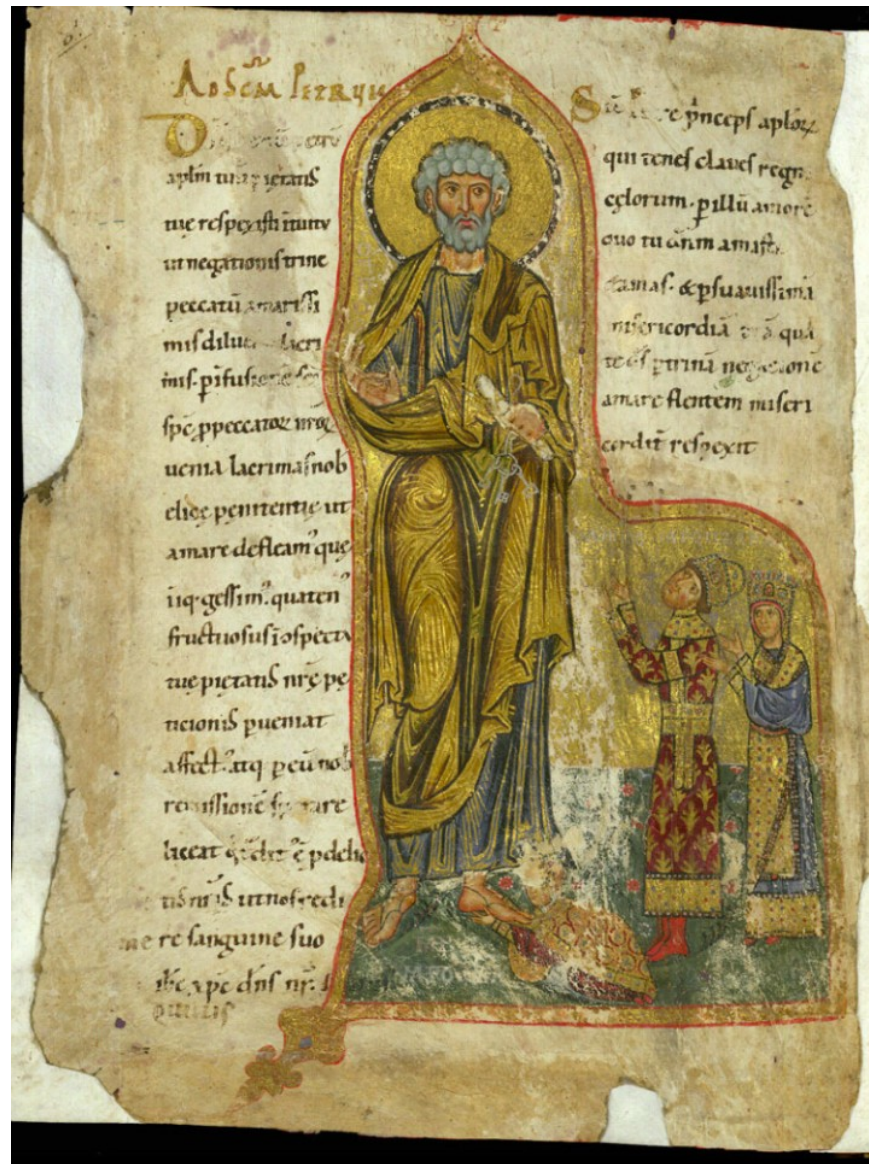 Ad Scm Petrum
aplm tuu pietatis
tue respexisti ituitu
ut negationis trine
peccatū amarissi
mis dilue lacri
mis. p̄ ifusione sc̄i
sp̄c p̄ peccatoꝝ nr̄oꝝ
uenia lacrimas nob̄
elice penitentie ut
amare defleam᾽ que
iiq gessim᾽. quaten᾽
fructuosus i ospectu
tue pietatis nr̄ę pe
ticionis pueniat
affect᾽. atq p eū nob̄
remissionē sperare
liceat p delic
tis nr̄is ut nos redi
me re sanguine suo
ih̄c xp̄c dn̄s nr̄.
Sc̄e p̄nceps apl̄oꝝ
qui tenes claues regni
cęlorum. p̄ illū amorē
quo tu dn̄m amasti
& amas. & p̄ suauissimā
misericordiā suā qua
te ds̄ p̄ trinā negationē
amare flentem miseri
corditer respexit